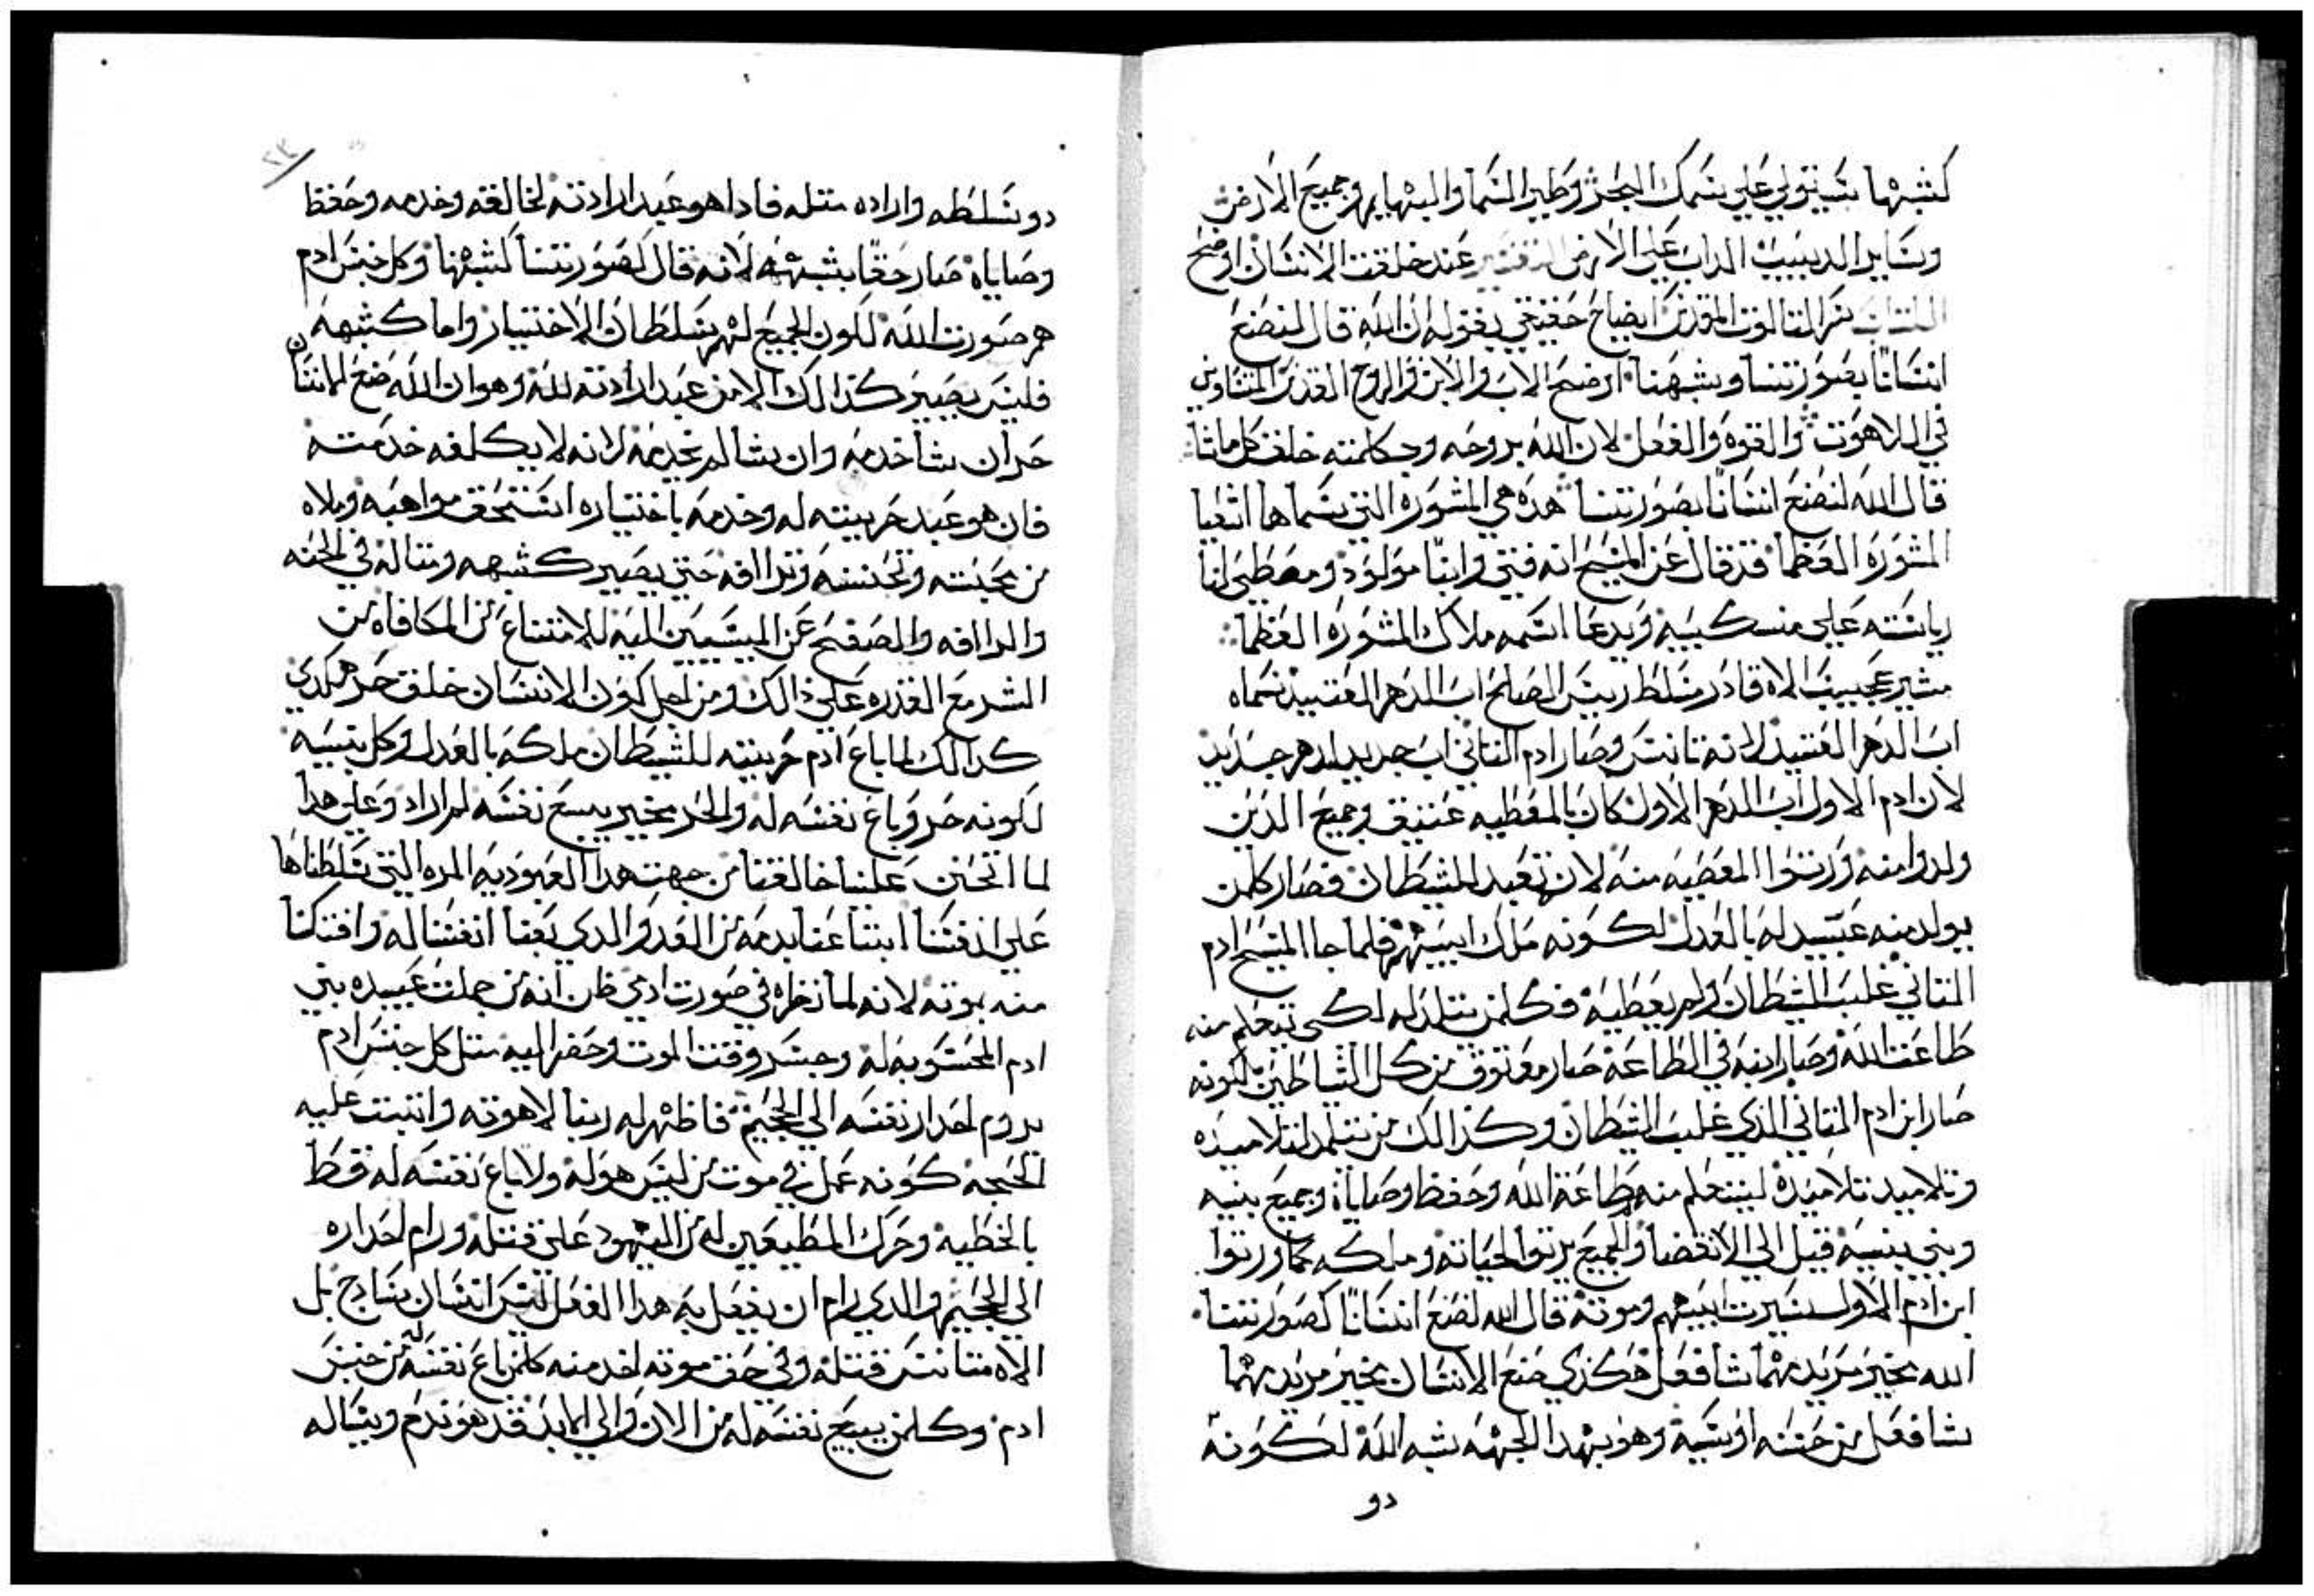 كشبهنا يستولي علي سمك البحر وطير السما والبهايم وجميع الارض
وساير الدبيب الداب علي الارض التفسير عند خلقت الانسان اوضح
اللسان سر التالوت المقدس ايضاح حقيقي بقوله ان الله قال لنصنع
انسانًا بصورتنا وشبهنا اوضح الاب والابن والروح القدس المتساوين
في اللاهوت والقوه والفعل لان الله بروحه وبكلمته خلق كل ماشا
قال الله لنصنع انسانًا بصورتنا هده هي المشوره التي سماها اشعيا
المشوره العظما قد قال عن المسيح انه فتي وابنًا مولود ومعطي لنا
رياسته علي منكبيه ويدعا اسمه ملاك المشوره العظما
مشير عجيب الاه قادر مسلط رييس الصلح اب الدهر العتيد سماه
اب الدهر العتيد لانه تانس وصار ادم التاني اب جديد لدهر جديد
لان ادم الاول اب الدهر الاول كان بالمعطيه عتيق وجميع الدين
ولدوا منه ورتوا المعصيه منه لانه تعبد للشيطان فصار كلمن
يولد منه عبيد له بالعدل لكونه ملك ابيهم فلما جا المسيح ادم
التاني غلب الشيطان ولم يعطيه فكلمن يتلمد له لكي يتعلم منه
طاعت الله وصار ابنه في الطاعه صار معتوق من كل الشياطين لكونه
صار ابن ادم التاني الدي غلب الشيطان وكدالك من يتلمد لتلاميده
وتلاميد تلاميده ليتعلم منهم طاعة الله وحفظ وصاياه وجميع بنيه
وبني بنيه قيل الي الانقضا والجميع يرتوا لحياته وملكه كما ورتوا
ابن ادم الاول لسيرت ابيهم وموته قال الله لنصنع انسانًا كصورتنا
الله مخير مريد مهما شا فعل هكدي صنع الانسان مخير مريد مهما
شا فعل من حسنه او سيه وهو بهدا الجهه شبه الله لكونه
دو
دو سلطه واراده متله فادا هو عبد ارادته لخالقه وخدمه وحفظ
وصاياه صار حقًا بشبهه لانه قال كصورتنا كشبهنا وكل جنس ادم
هم صورت الله لكون الجميع لهم سلطان الاختيار واما كشبهه
فليس يصير كدالك الا من عبد ارادته لله وهو ان الله صنع الانسان
حر ان شا خدمه وان شا لم يخدمه لانه لا يكلفه خدمته
فان هو عبد حريته له وخدمه باختياره استحق مواهبه وملاه
من محبته وتحننه وترا افه حتي يصير كشبهه ومتاله في المحبه
والرا افه والصفح عن المسيين اليه للامتناع من المكافاه عن
الشر مع القدره علي دالك ومن اجل كون الانسان خلق حر هكدي
كدالك لما باع ادم حريته للشيطان ملكه بالعدل وكل بنيه
لكونه حر وباع نفسه له والحر مخير يبيع نفسه لمن اراد وعلي هدا
لما اتحنن علينا خالقنا من جهت هدا العبوديه المره التي سلطناها
علي انفسنا ابتاعنا بدمه من العدو الدي بعنا انفسنا له وافتكنا
منه بموته لانه لما نظره في صورت ادمي ظن انه من جملت عبيده بني
ادم المحسوبه له وجسر وقت الموت وحضر اليه متل كل جنس ادم
يروم احدار نفسه الي الجحيم فاظهر له ربنا لاهوته واتبتت عليه
الحجه كونه عمل في موت من ليس هو له ولا باع نفسه له قط
بالخطيه وحرك المطيعين له من اليهود علي قتله ورام احداره
الي الجحيم والدي رام ان يفعل به هدا الفعل ليس انسان سادج بل
الاه متانس قتله وفي حق موته اخد منه كلمن باع نفسه له من جنس
ادم وكلمن يبيع نفسه له من الان والي الابد قد هو ندم وسال